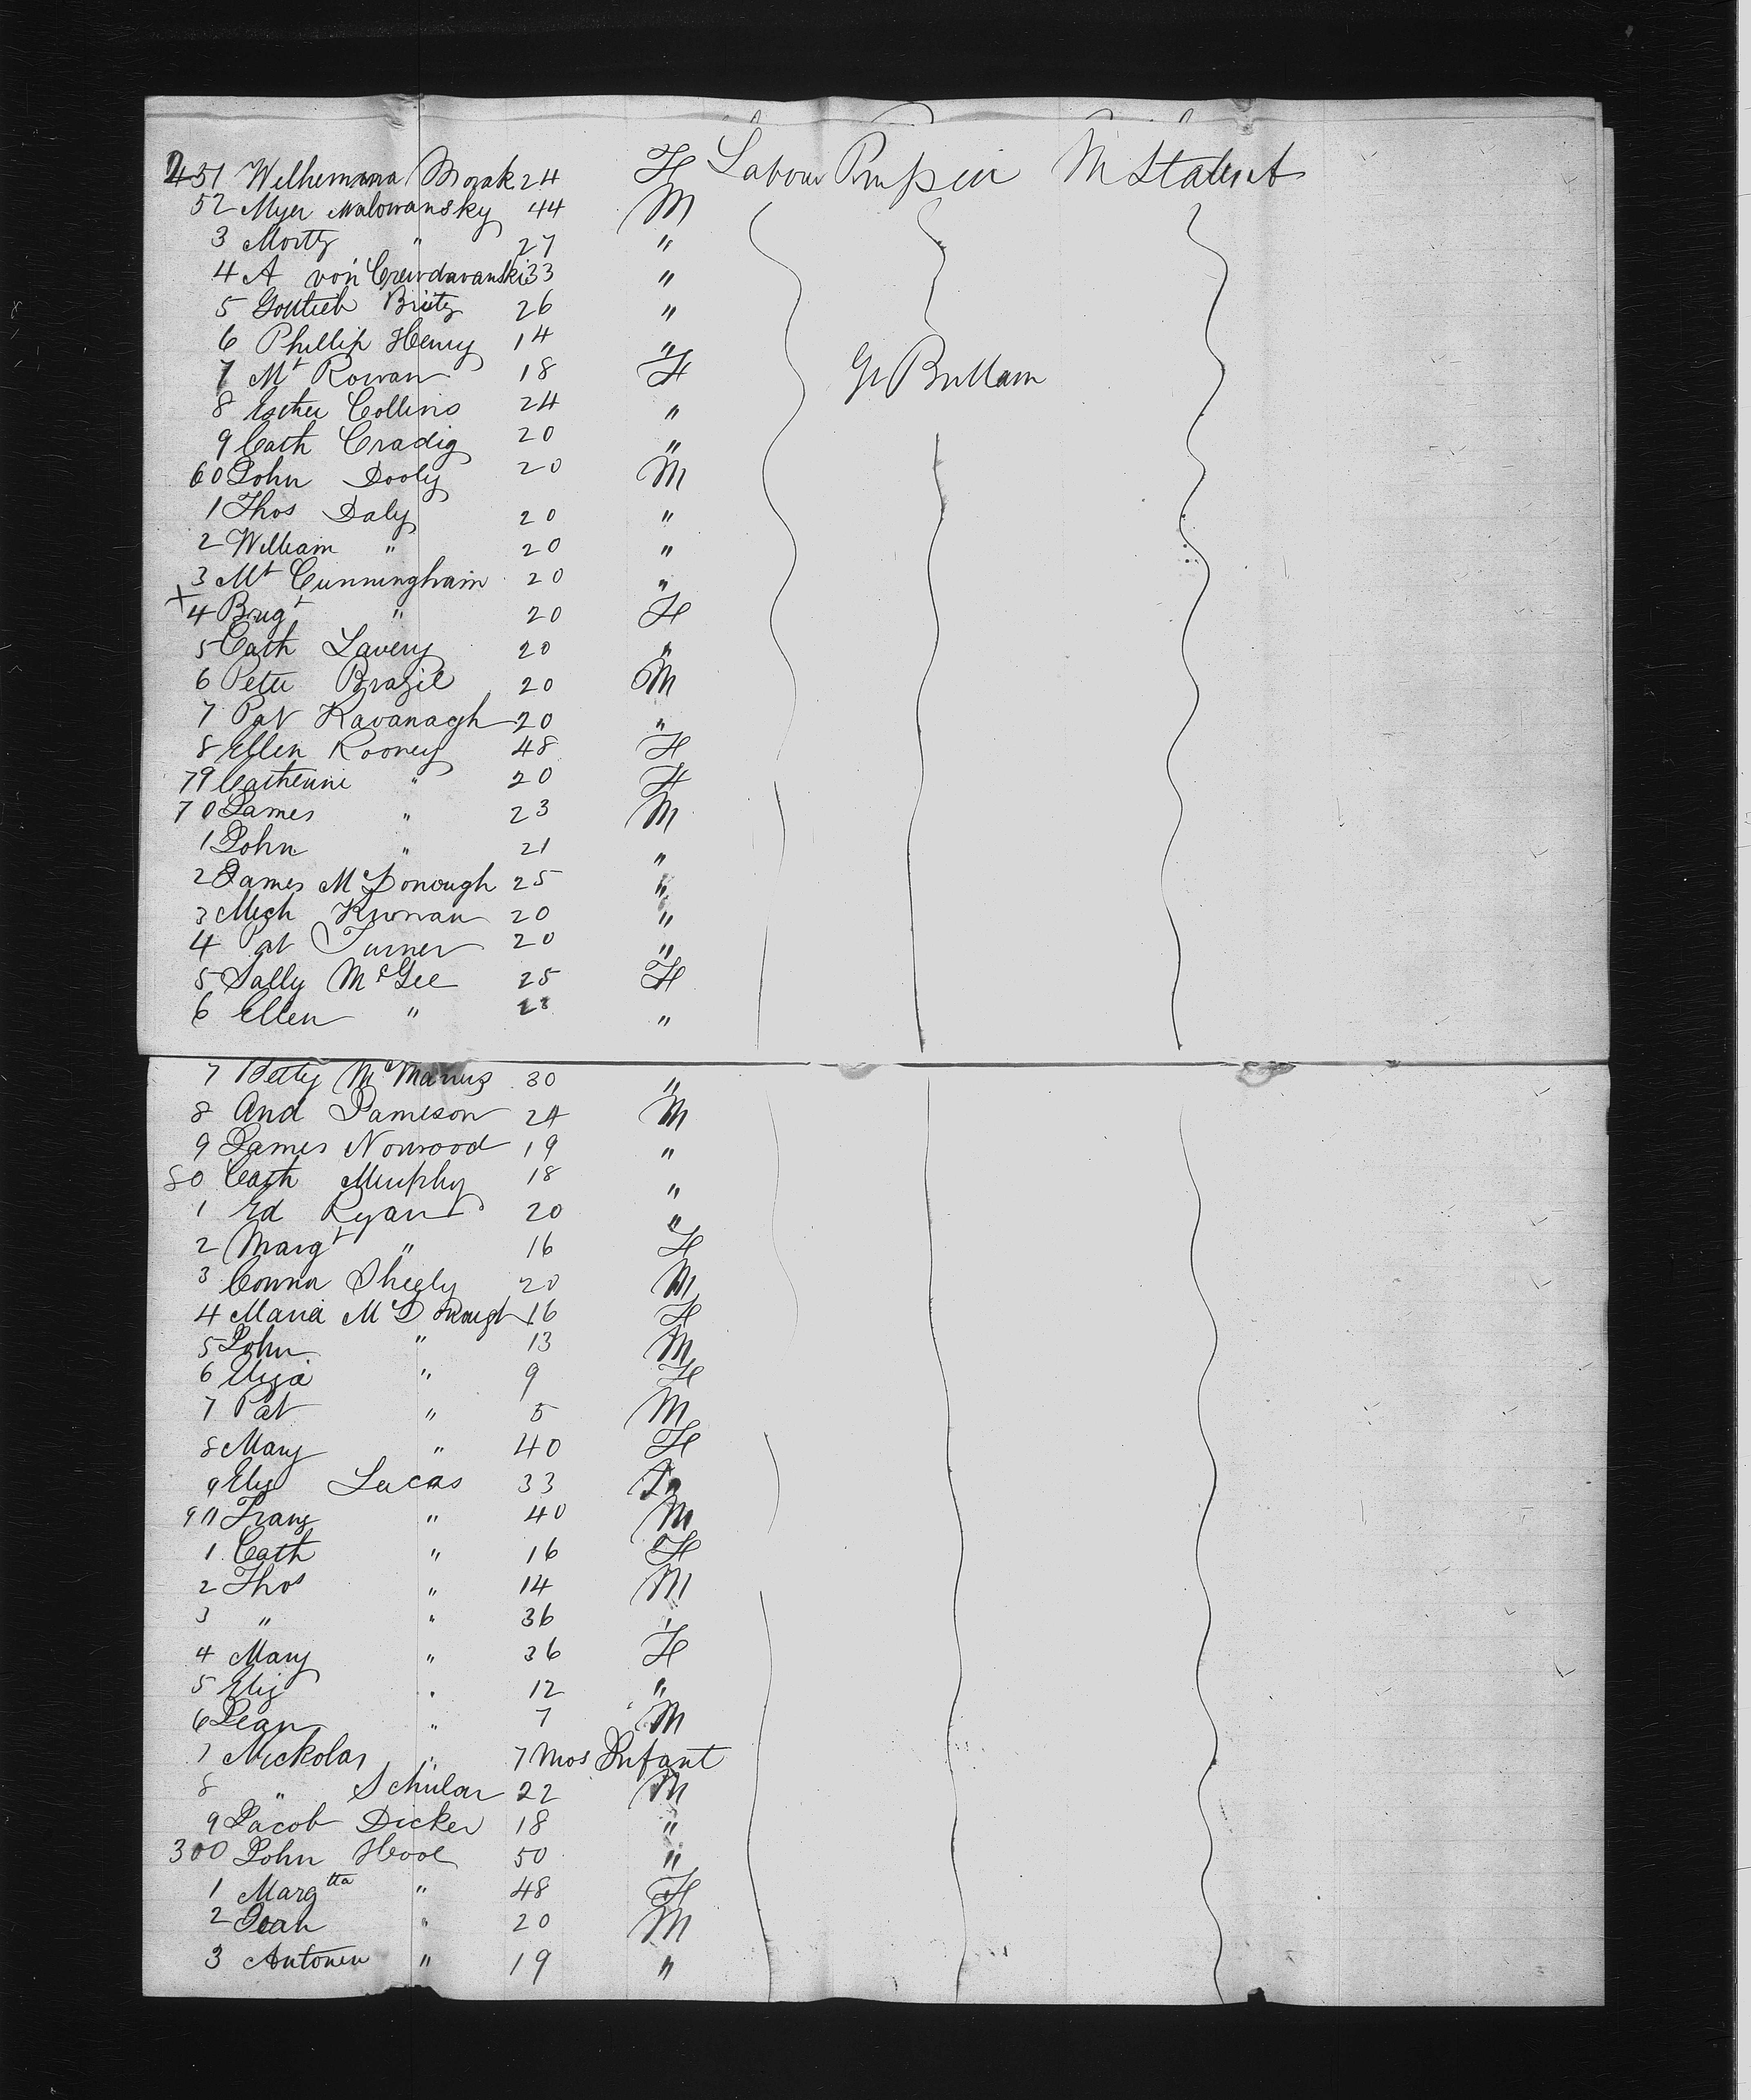 251 Welhemana Morak 24 F Labour Prussia U States
52 Myer Malowansky 44 M
3 Mortz " 27 "
4 A von Crewdawanski 33 "
5 Gottlieb Britz 26 "
6 Phillip Henry 14 "
7 Mt Rowan 18 F Gt Brittain
8 Esther Collins 24 "
9 Cath Cradig 20 "
60 John Dooly 20 M
1 Thos Daly 20 "
2 William " 20 "
3 Mt Cunningham 20 "
X 4 Brigt " 20 F
5 Cath Lavery 20 "
6 Peter Brazil 20 M
7 Pat Kavanagh 20 "
8 Ellen Rooney 48 F
79 Catherine " 20 F
70 James " 23 M
1 John " 21 "
2 James McDonough 25 "
3 Mich Kiernan 20 "
4 Pat Turner 20 "
5 Sally McGee 25 F
6 Ellen " 28 "
7 Betty McManus 30 "
8 And Jameson 24 M
9 James Norwood 19 "
80 Cath Murphy 18 "
1 Ed Ryan 20 "
2 Margt " 16 F
3 Conna Sheely 20 M
4 Maria McDonough 16 F
5 John " 13 M
6 Eliza " 9 F
7 Pat " 5 M
8 Mary " 40 F
9 Eliz Lucas 33
90 Franz " 40 M
1 Cath " 16 F
2 Thos " 14 M
3 " " 36 "
4 Mary " 36 F
5 Eliz " 12 "
6 Jean " 7 M
7 Nickolas " 7 Mos Infant
8 " Schular 22 M
9 Jacob Dicker 18 "
300 John Hoole 50 "
1 Margtta " 48 F
2 Jean " 20 M
3 Antonen " 19 "